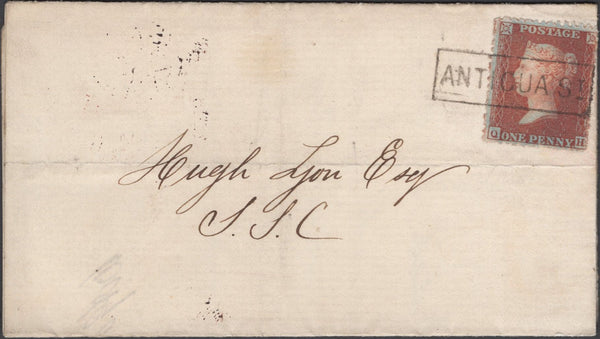 POSTAGE
ANTIGUA ST
Q ONE PENNY H
Hugh Lyon Esq
S.S.C